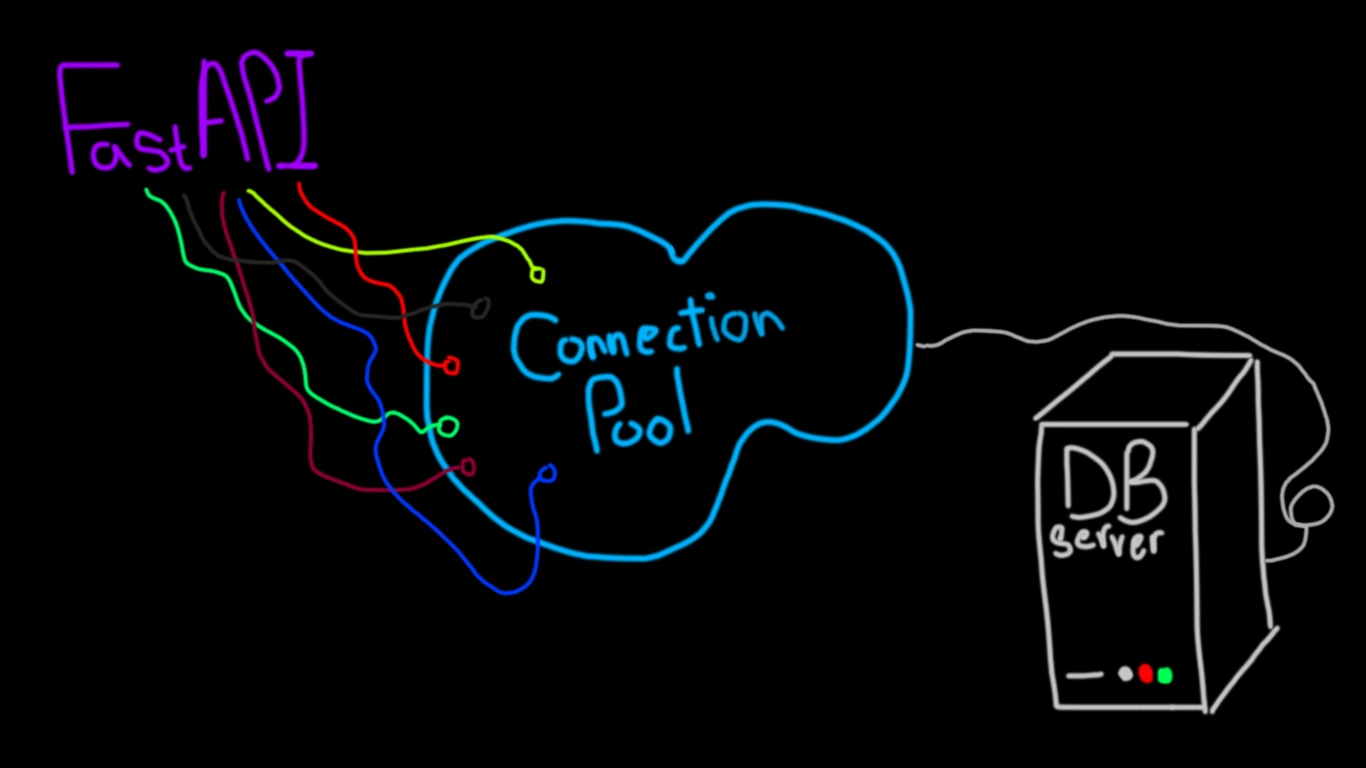 FastAPI
Connection
Pool
DB
server